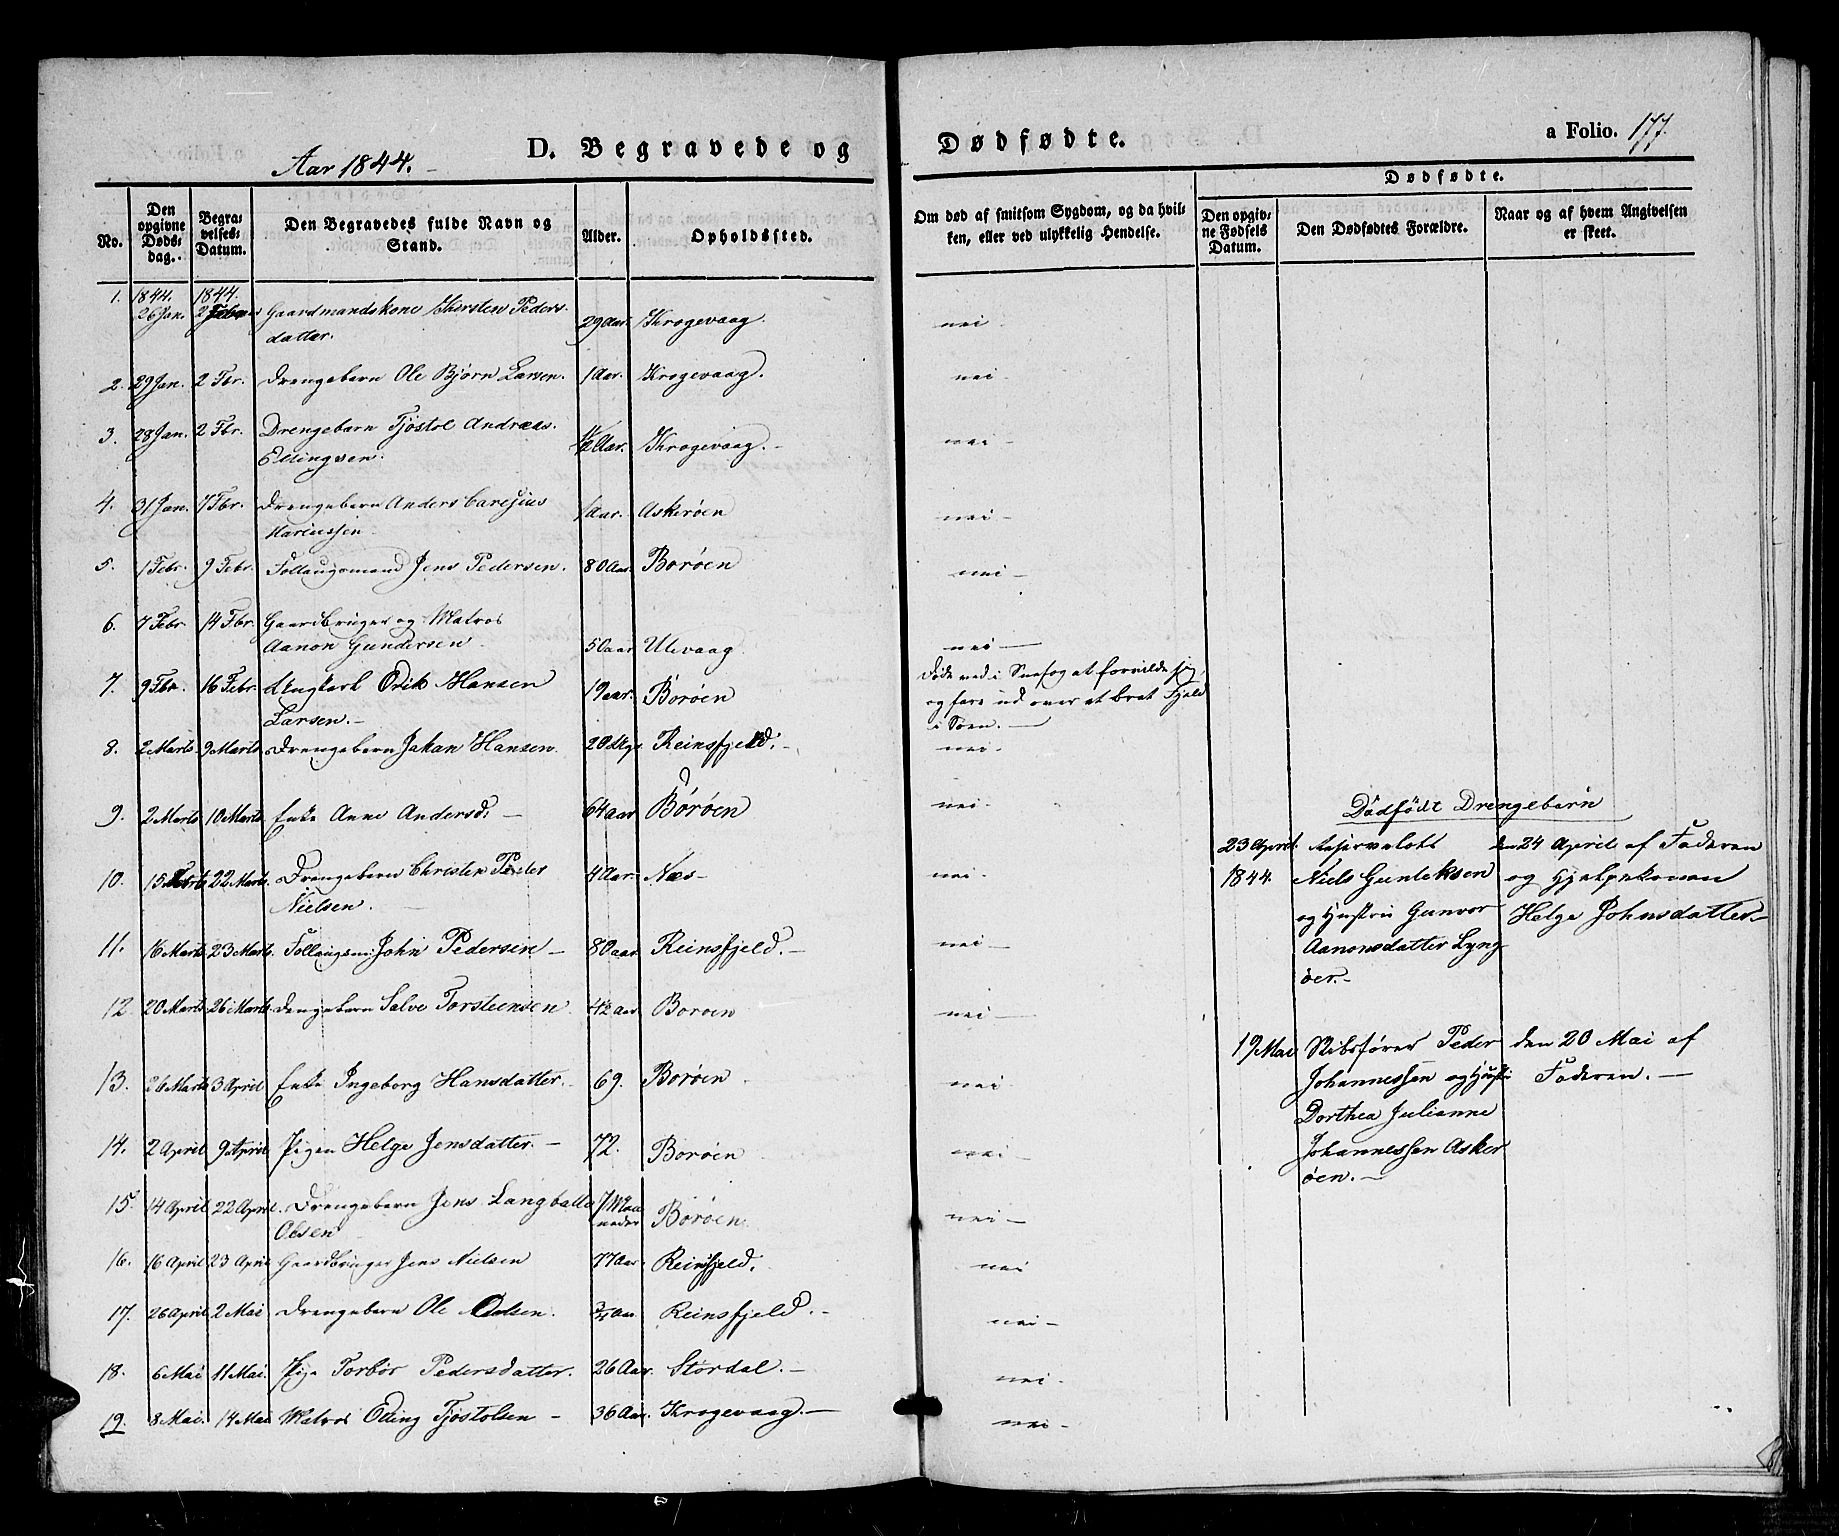 Aar 1844.
D. Begravede og
Dødfødte.
a Folio. 177.
No.
Den opgivne Døds-dag.
Begra-velses-Datum.
Den Begravedes fulde Navn og Stand.
Alder.
Opholdssted.
Om død af smitsom Sygdom, og da hvil-ken, eller ved ulykkelig Hendelse.
Dødfødte.
Den opgiv-ne Fødsels Datum.
Den Dødfødtes Forældre.
Naar og af hvem Angivelsen er skeet.
1. 1844. 1844.
26 Jan. 2 Gaardmandskone Kjersten Peders-
datter. 29 Aar. Krogevaag. nei.
2. 29 Jan. 2 Fbr. Drengebarn Ole Bjørn Larsen. 1 Aar. Krogevaag. nei-
3. 28 Jan. 2 Fbr. Drengebarn Tjøstol Andreas
Ellingsen. ½ Aar. Krogevaag.- nei-
4. 31 Jan. 7 Fbr. Drengebarn Anders
Mariussen 1 aar. Askerøen nei-
5. 1 Febr. 9 Febr. Jens Pedersen. 80 Aar Borøen nei-
6. 7 Febr 14 Fbr. Gaardbruger og Matros
Aanon Gundersen 50 aar Ulevaag nei-
7. 9 Fbr. 16 Febr. Ungkarl Erik Hansen
Larsen.- 19 aar. Borøen
Døde ved i Snefog at forvilde sig
og fare ud over et brat Fjeld
i Søen.-
8. 2 Marts 9 Marts Drengebarn Jakan Hansen 20 Reinsfjeld.- nei-
9. 2 Marts 10 Marts Enke Anne Andersd: - 64 aar Borøen nei-
10. 15 22 Marts Drengebarn Christen Peder
Nielsen. 4 Aar Næs- nei-
11. 16 Marts 23 Marts. John Pedersen - 80 aar Reinsfjeld.- nei-
12 20 Marts 26 Marts. Drengebarn Salve Torsteensen Boroen nei-
13. 26 Marts 3 April Enke Ingeborg Hansdatter.- 69. Borøen nei
14. 2 April 9 April Pigen Helge Jensdatter.- 72. Borøen nei-
15. 14 April 22 April. Drengebarn Jens Langballe
Olsen 7 Maa
neder Borøen nei-
16. 16 April 23 April Gaardbruger Jens Nielsen 77 Aar Reinsfjeld. nei
17. 26 April 2 Mai Drengebarn Ole Olsen. ¾ Aar Reinsfjeld.- nei-
18. 6 Mai 11 Mai. Pige Torbør Pedersdatter. 26 Aar. Stordal.- nei-
19. 8 Mai. 14 Mai Matros Elling Tjøstolsen - 36 Aar. Krogevaag.- nei-
Dødfødt Drengebarn
23 April.
1844.
Reservelots
Niels Gunleksen
og Hustru Gunvor
Aanonsdatter Lyng-
øer.-
den 24 April af Faderen
og Hjelpekonen
Helge Johnsdatter.-
19 Mai
Skibsfører Peder
Johannessen og Hustr:
Dorthea Julianne
Johannessen Asker
øen.-
den 20 Mai af
Faderen.-